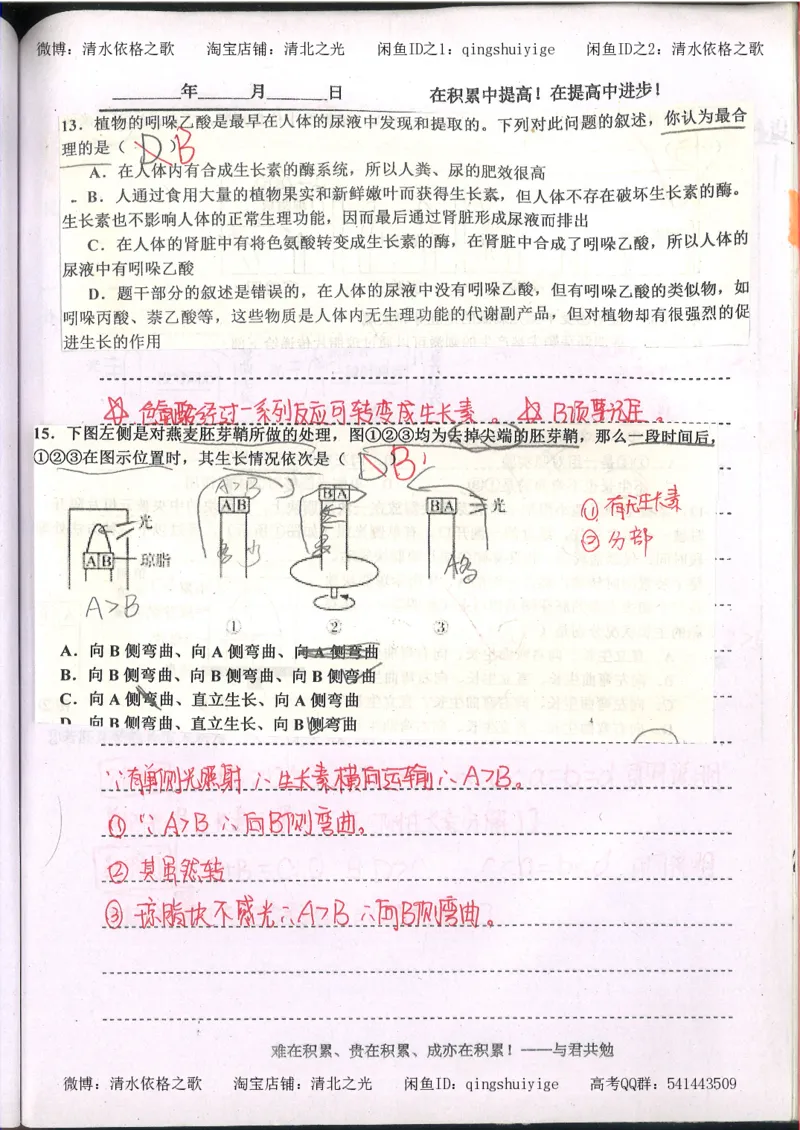 微博：清水依格之歌 淘宝店铺：清北之光 闲鱼ID之1：qingshuiyige 闲鱼ID之2：清水依格之歌
______年______月______日 在积累中提高！在提高中进步！
13．植物的吲哚乙酸是最早在人体的尿液中发现和提取的。下列对此问题的叙述，你认为最合
理的是（ D ）B
A．在人体内有合成生长素的酶系统，所以人粪、尿的肥效很高
B．人通过食用大量的植物果实和新鲜嫩叶而获得生长素，但人体不存在破坏生长素的酶。
生长素也不影响人体的正常生理功能，因而最后通过肾脏形成尿液而排出
C．在人体的肾脏中有将色氨酸转变成生长素的酶，在肾脏中合成了吲哚乙酸，所以人体的
尿液中有吲哚乙酸
D．题干部分的叙述是错误的，在人体的尿液中没有吲哚乙酸，但有吲哚乙酸的类似物，如
吲哚丙酸、萘乙酸等，这些物质是人体内无生理功能的代谢副产品，但对植物却有很强烈的促
进生长的作用
色氨酸经过一系列反应可转变成生长素。B项
15．下图左侧是对燕麦胚芽鞘所做的处理，图①②③均为去掉尖端的胚芽鞘，那么一段时间后，
①②③在图示位置时，其生长情况依次是（ D ）B
光
A B
琼脂
A>B
A>B
A B
多 少
①
B A
②
B A
光
A多
③
① 有无生长素
② 分部
A．向 B 侧弯曲、向 A 侧弯曲、向 A 侧弯曲
B．向 B 侧弯曲、向 B 侧弯曲、向 B 侧弯曲
C．向 A 侧弯曲、直立生长、向 A 侧弯曲
D．向 B 侧弯曲、直立生长、向 B 侧弯曲
∵有单侧光照射 ∴生长素横向运输∴A>B。
① ∵A>B ∴向B侧弯曲。
② 其虽然转
③ 琼脂块不感光∴A>B ∴向B侧弯曲。
难在积累、贵在积累、成亦在积累！——与君共勉
微博：清水依格之歌 淘宝店铺：清北之光 闲鱼ID：qingshuiyige 高考QQ群：541443509